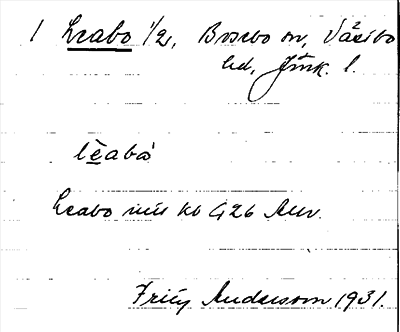 1 Leabo 1/2, Bosebo sn, Västbo
hd, Jönk. l.
lèabò
Leabo
Fritz Andersson 1931.